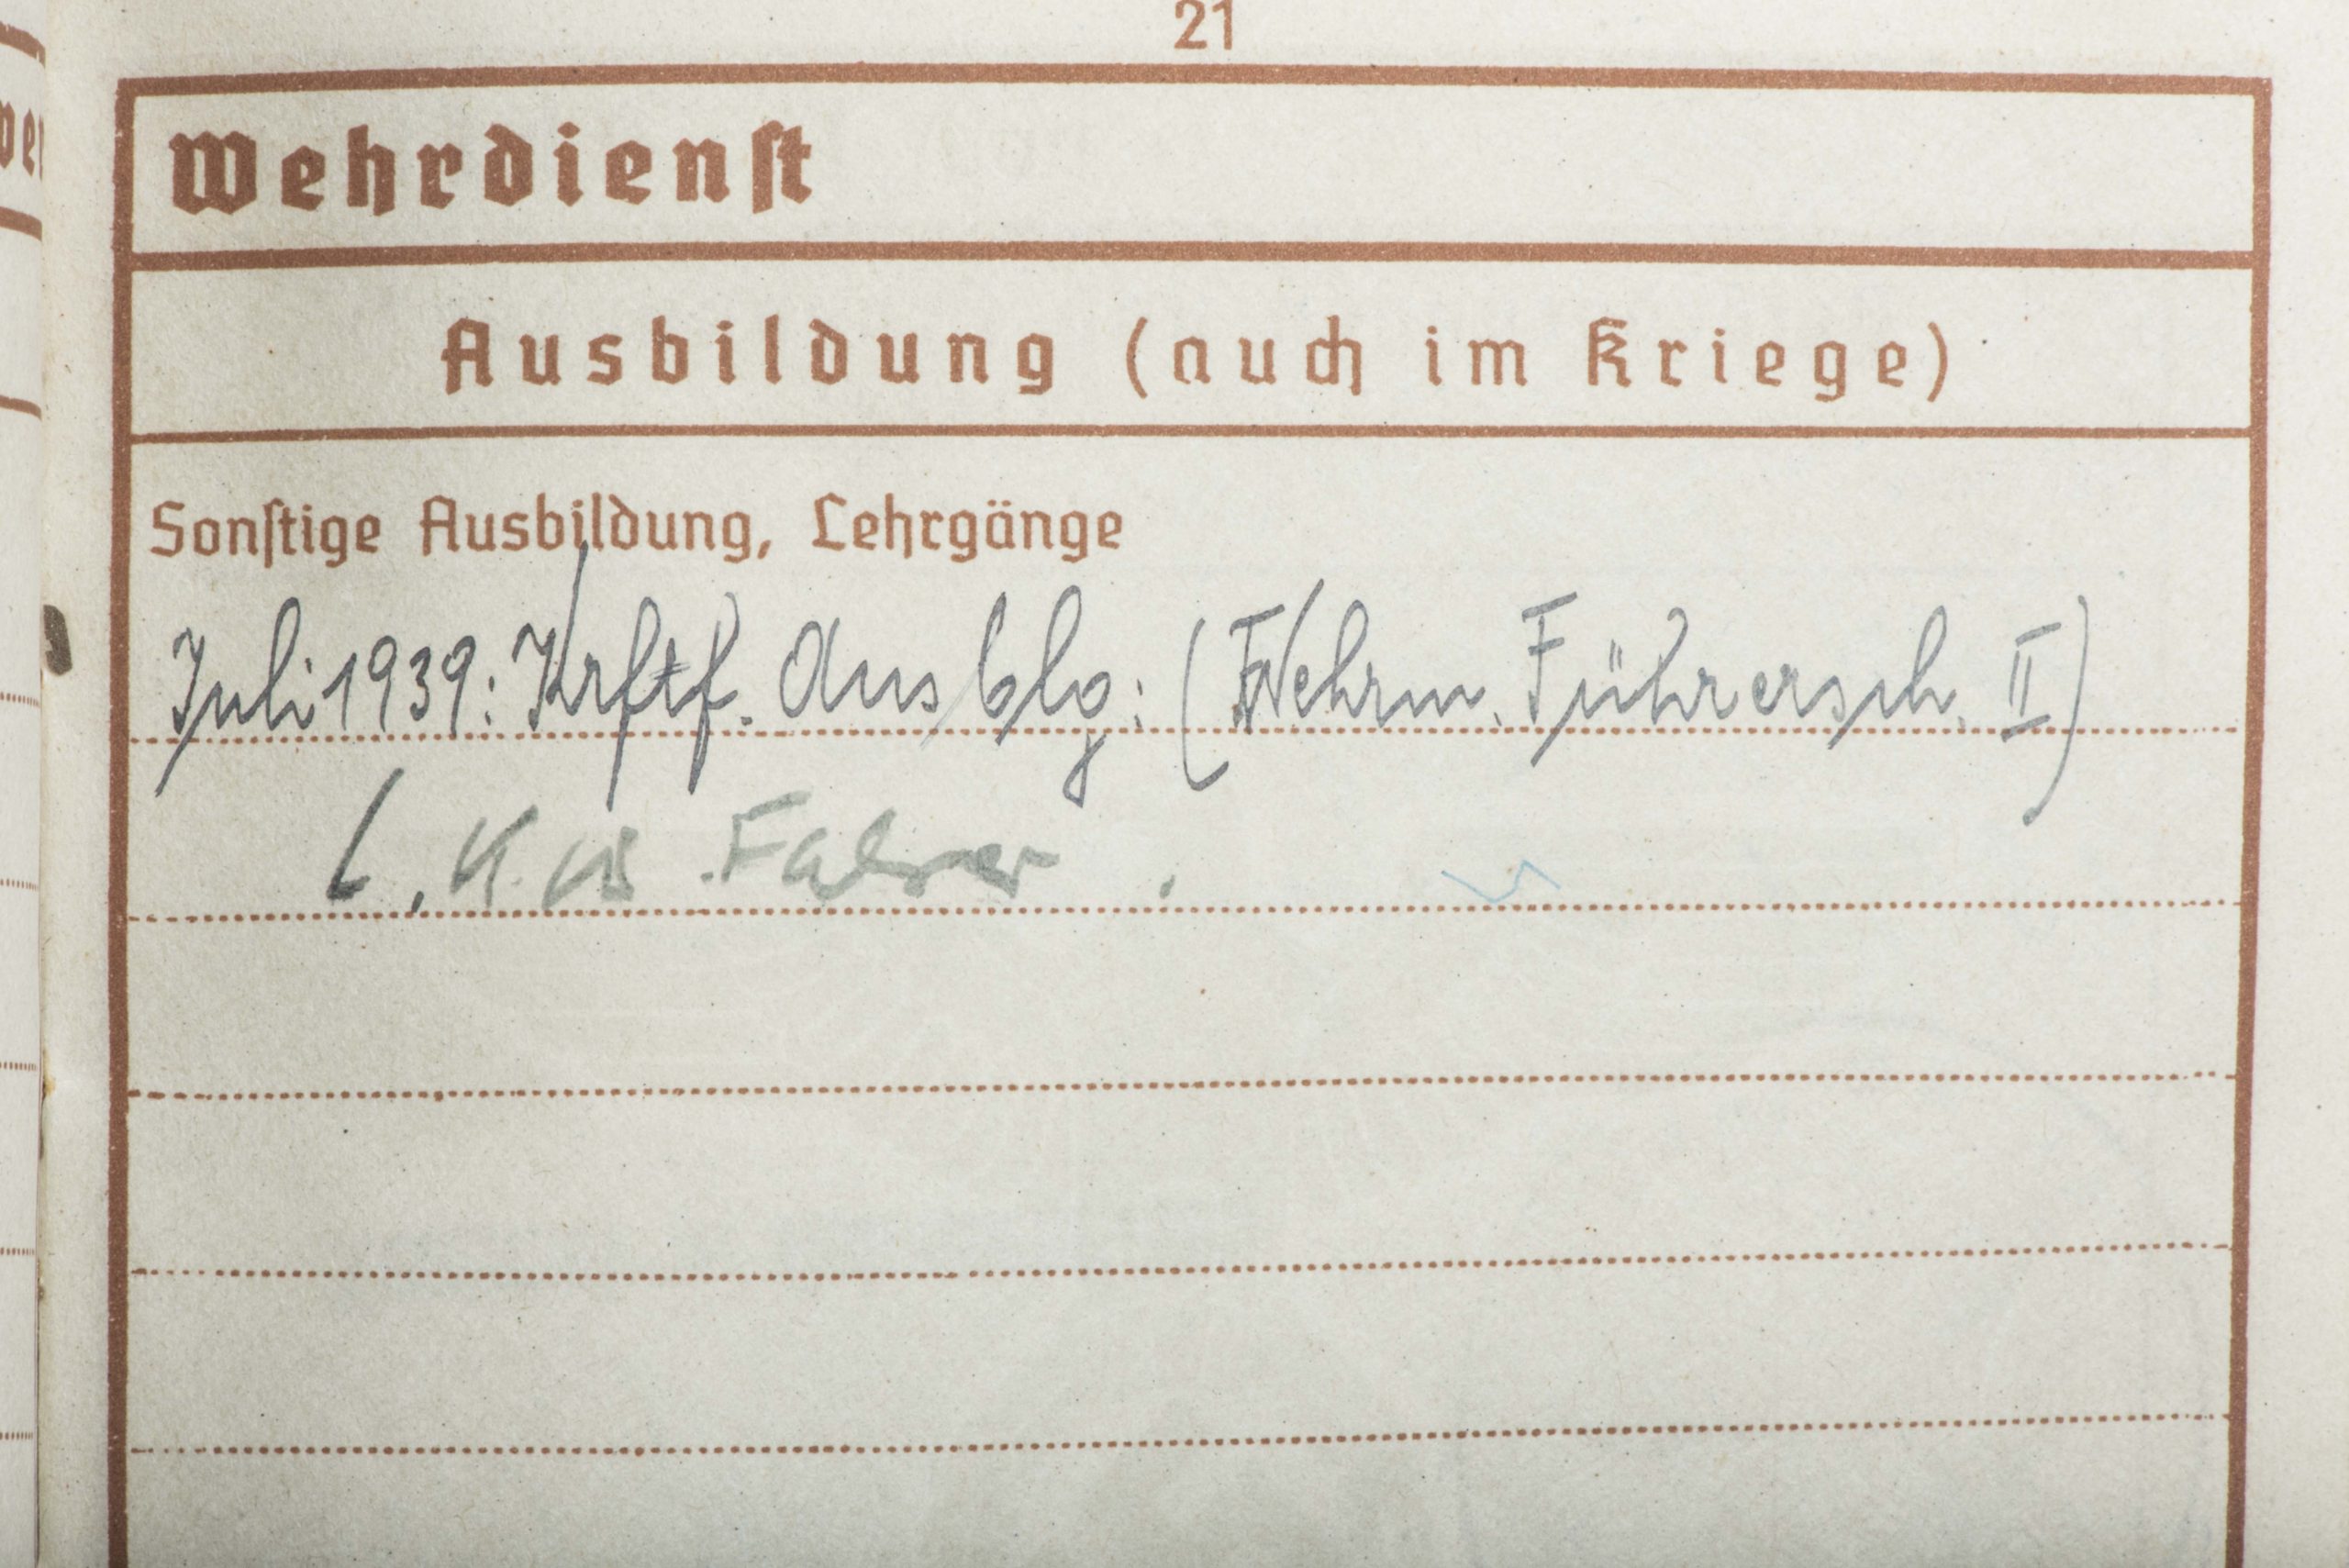 21
Wehrdienst
Ausbildung (auch im Kriege)
Sonstige Ausbildung, Lehrgänge
Juli 1939: Krftf. Ausblg: (Wehrm. Führersch. II)
Fahrer